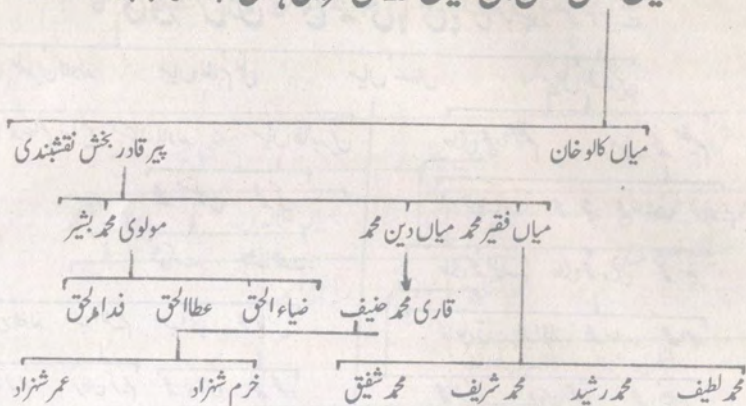 میاں کالو خان پیر قادر بخش نقشبندی
میاں فقیر محمد میاں دین محمد مولوی محمد بشیر
قاری محمد حنیف ضیاء الحق عطا الحق فداء الحق
محمد لطیف محمد رشید محمد شریف محمد شفیق خرم شہزاد عمر شہزاد